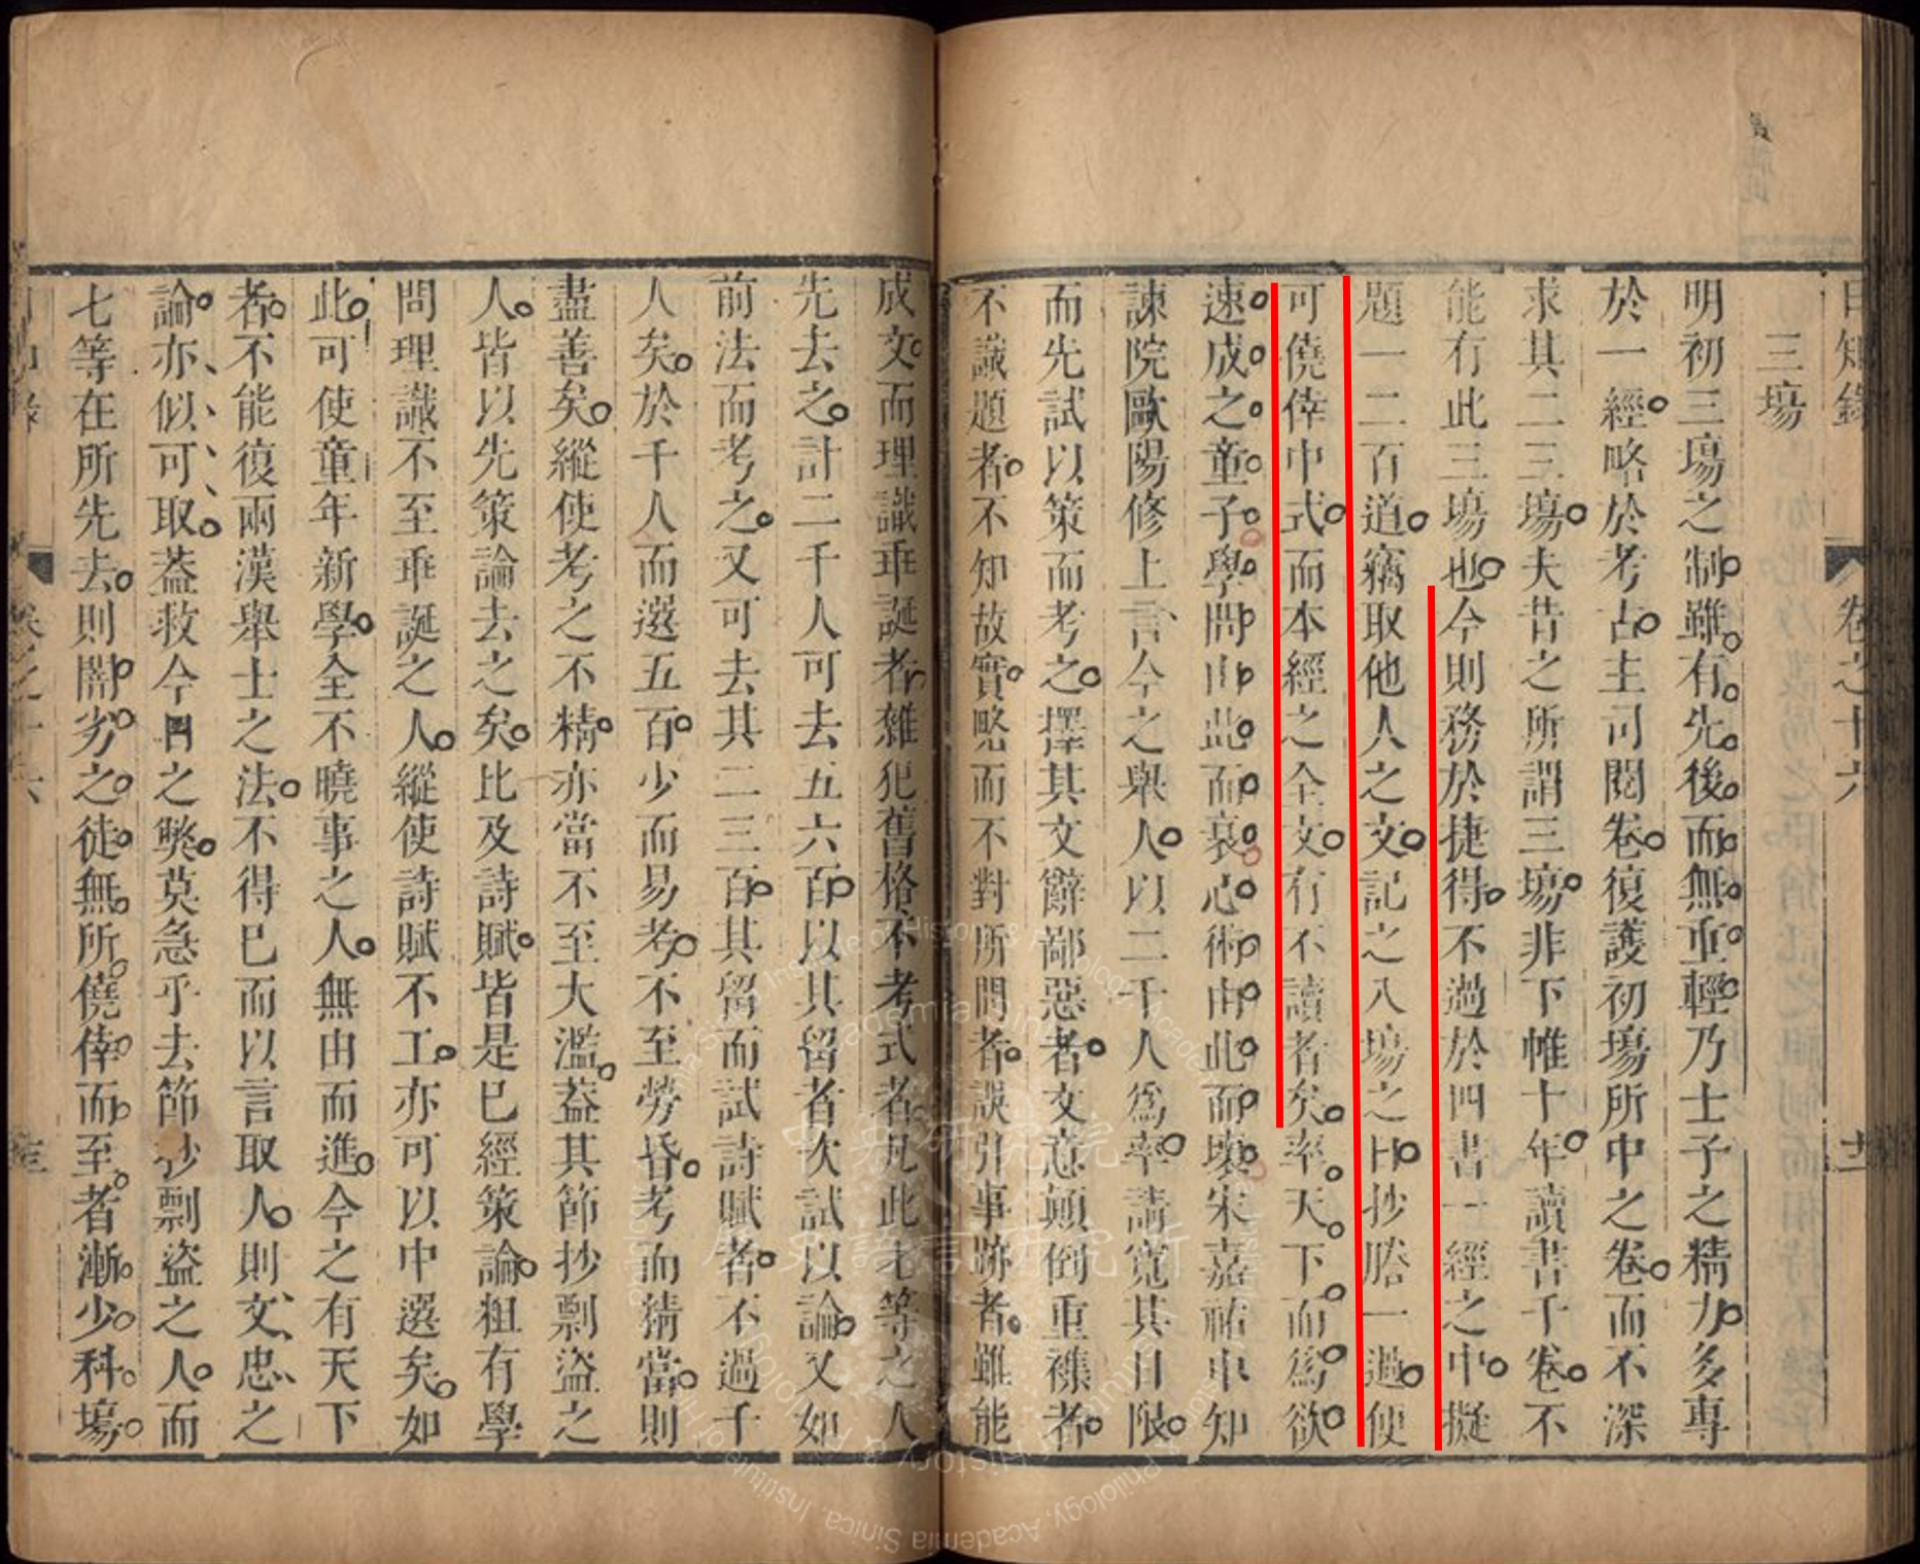 日知錄 卷之十六
三場
明初三場之制雖有先後而無重輕乃士子之精力多專
於一經略於考古主司閱卷復護初場所中之卷而不深
求其二三場夫昔之所謂三場非下帷十年讀書千卷不
能有此三場也今則務於捷得不過於四書一經之中擬
題一二百道竊取他人之文記之入場之日抄謄一過便
可僥倖中式而本經之全文有不讀者矣率天下而爲欲
速成之童子學問由此而衰心術由此而壞宋嘉祐中知
諫院歐陽修上言今之舉人以二千人爲率請寬其日限
而先試以策而考之擇其文辭鄙惡者文意顛倒重襍者
不識題者不知故實略而不對所問者誤引事跡者雖能
成文而理識乖誕者雜犯舊格不考式者凡此七等之人
先去之計二千人可去五六百以其留者次試以論又如
前法而考之又可去其二三百其留而試詩賦者不過千
人矣於千人而選五百少而易考不至勞昏考而精當則
盡善矣縱使考之不精亦當不至大濫葢其節抄剽盜之
人皆以先策論去之矣比及詩賦皆是已經策論粗有學
問理識不至乖誕之人縱使詩賦不工亦可以中選矣如
此可使童年新學全不曉事之人無由而進今之有天下
者不能復兩漢舉士之法不得已而以言取人則文忠之
論亦似可取葢救今日之獘莫急乎去節抄剽盜之人而
七等在所先去則闇劣之徒無所僥倖而至者漸少科場